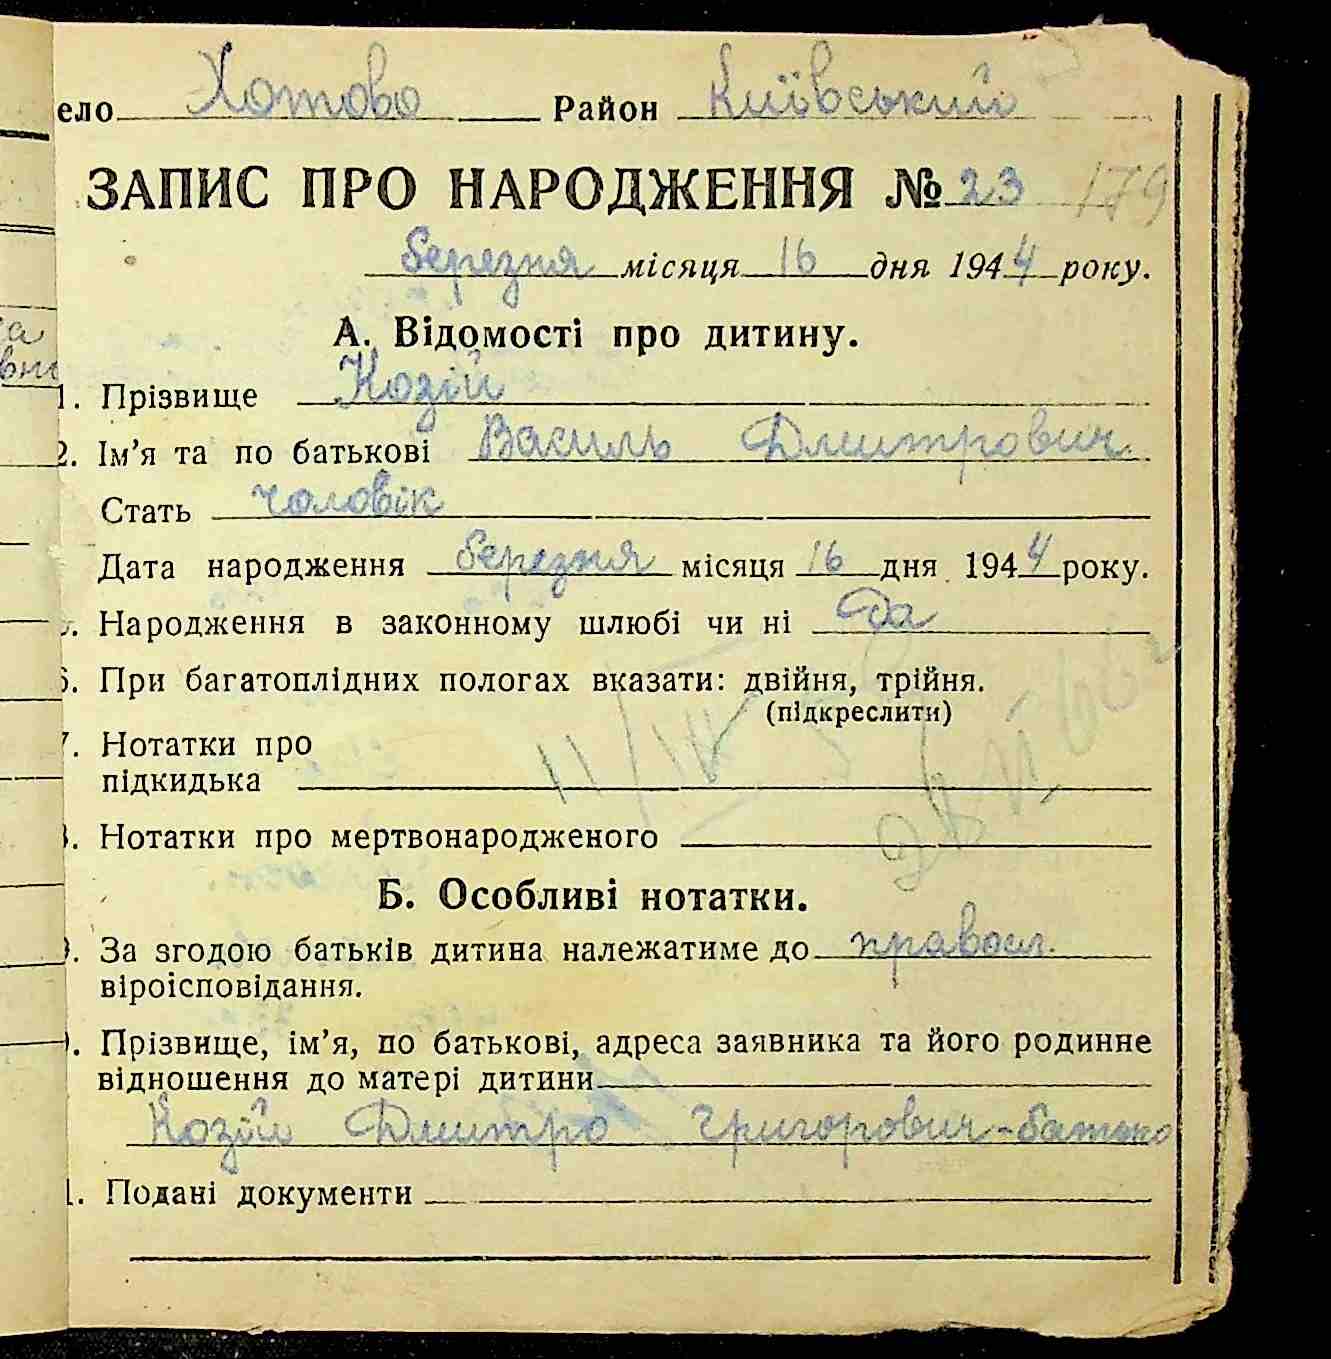 ело Хотово Район Київський
ЗАПИС ПРО НАРОДЖЕННЯ № 23 179
березня місяця 16 дня 1944 року.
А. Відомості про дитину.
1. Прізвище Козій
2. Ім’я та по батькові Василь Дмитрович
Стать чоловік
Дата народження березня місяця 16 дня 1944 року.
. Народження в законному шлюбі чи ні Да
6. При багатоплідних пологах вказати: двійня, трійня.
(підкреслити)
7. Нотатки про
підкидька
. Нотатки про мертвонародженого
Б. Особливі нотатки.
. За згодою батьків дитина належатиме до правосл.
віроісповідання.
. Прізвище, ім’я, по батькові, адреса заявника та його родинне
відношення до матері дитини
Козій Дмитро Григорович - батько
1. Подані документи